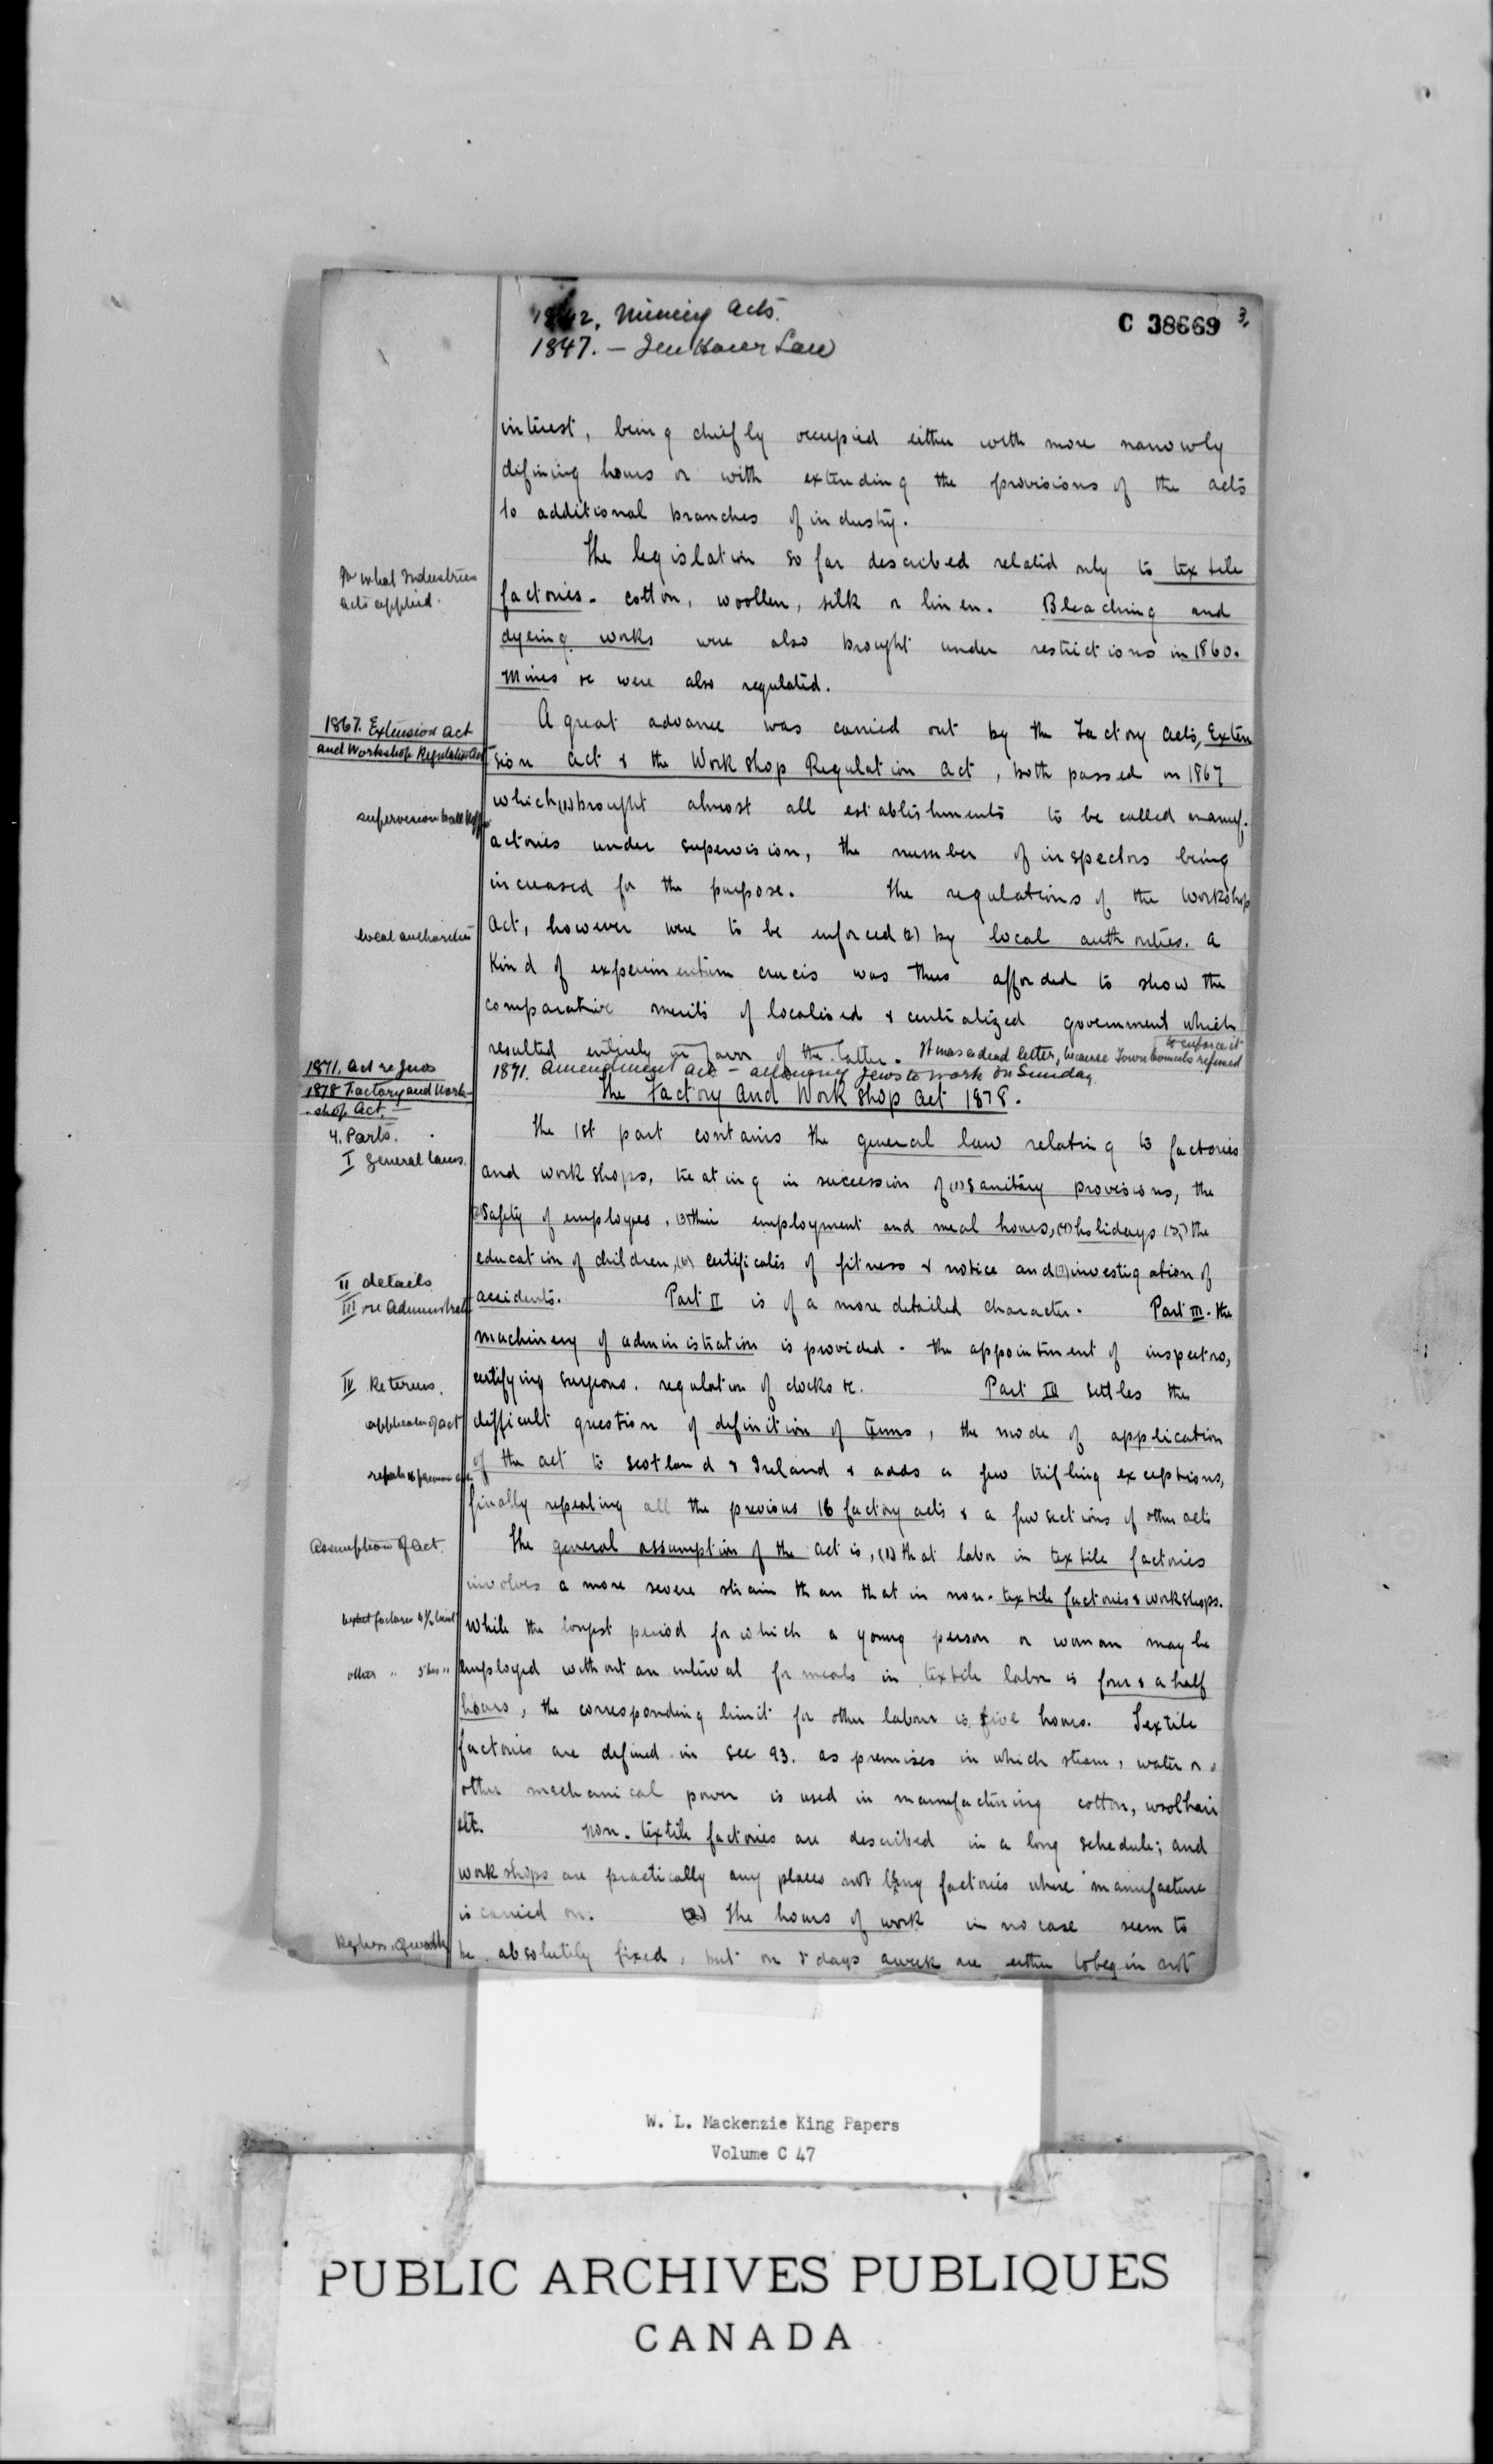 1842. Mining Acts.
1847. — Ten Hour Law
C 38669
3,
interest, being chiefly occupied either with more narrowly
defining hours or with extending the provisions of the acts
to additional branches of industry.
To what Industries
acts applied.
The legislation so far described related only to textile
factories - cotton, woollen, silk or linen. Bleaching and
dyeing works were also brought under restrictions in 1860.
Mines &c were also regulated.
1867. Extension Act
and Workshop Regulation Act
A great advance was carried out by the Factory Acts, Exten
sion Act & the Workshop Regulation Act, both passed in 1867
which (1) brought almost all establishments to be called manuf-
actories under supervision, the number of inspectors being
increased for the purpose. The regulations of the Workshop
local authorities
Act, however were to be enforced (2) by local authorities. A
kind of experimentum crucis was thus afforded to show the
comparative merits of localised & centralized government which
resulted entirely in favor of the latter. It was a dead letter, because Town Councils refused
to enforce it
1871. Amendment Act - allowing Jews to work on Sunday
1871. Act re Jews
1878 Factory and Work-
shop Act. —
4. Parts.
I General laws.
The Factory and Workshop Act 1878.
The 1st part contains the general law relating to factories
and workshops, treating in succession of (1) sanitary provisions, the
(2) safety of employees, (3) their employment and meal hours, (4) holidays (5) the
education of children, (6) certificates of fitness & notice and (7) investigation of
II details
III re Administrat
accidents. Part II is of a more detailed character. Part III - the
machinery of administration is provided - the appointment of inspectors,
IV Re terms.
certifying surgeons. regulation of clocks &c. Part IV settles the
applicatn of act
difficult question of definition of terms, the mode of application
of the act to Scotland & Ireland & adds a few trifling exceptions,
finally repealing all the previous 16 factory acts & a few sections of other acts
Assumption of Act.
The general assumption of the act is, (1) that labor in textile factories
involves a more severe strain than that in non-textile factories & workshops.
While the longest period for which a young person or woman may be
other " 5 hrs "
employed without an interval for meals in textile labor is four & a half
hours, the corresponding limit for other labour is five hours. Textile
factories are defined in sec 93. as premises in which steam, water or
other mechanical power is used in manufacturing cotton, wool hair
etc. Non-textile factories are described in a long schedule; and
workshops are practically any places not being factories where manufacture
is carried on. (2) The hours of work in no case seem to
be absolutely fixed, but on 5 days a week are either to begin not
W. L. Mackenzie King Papers
Volume C 47
PUBLIC ARCHIVES PUBLIQUES
CANADA